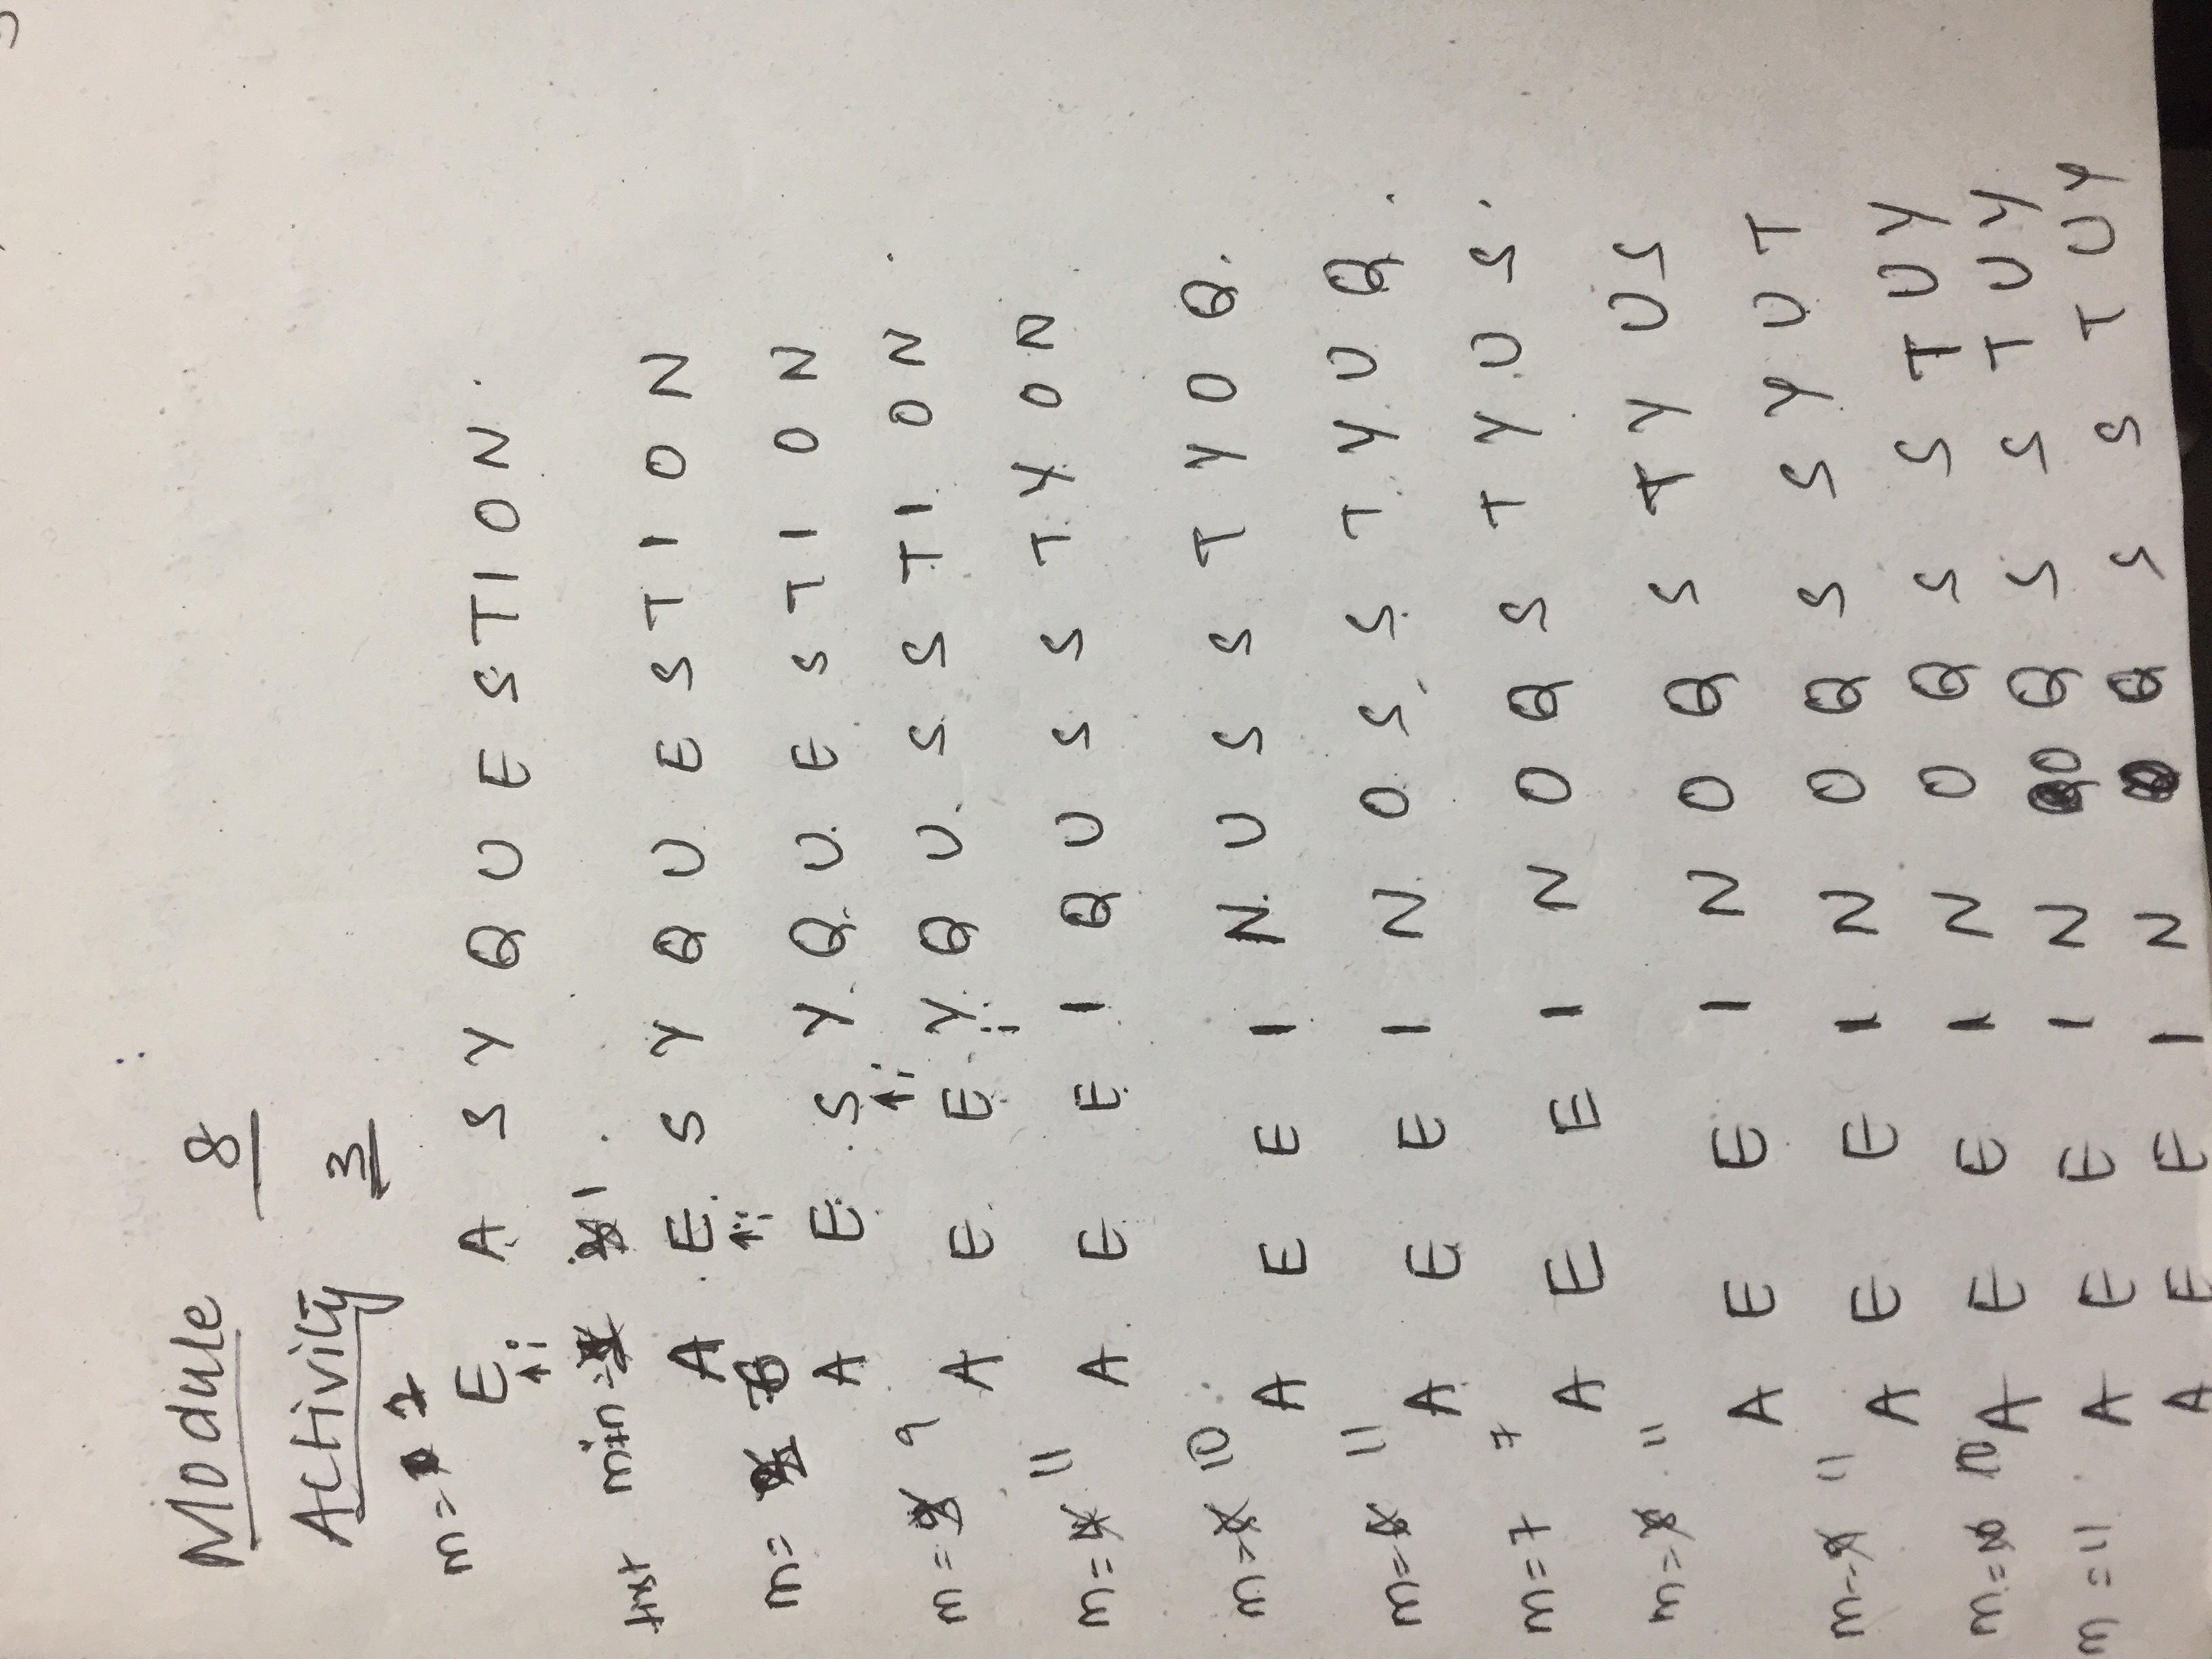 Module 8
Activity 3
m = 1
E A S Y Q U E S T I O N
i
first min = 1
A E S Y Q U E S T I O N
i
m = 6
A E S Y Q U E S T I O N
i
m = 9
A E E Y Q U S S T I O N
i
m = 11
A E E I Q U S S T Y O N
m = 10
A E E I N U S S T Y O Q
m = 11
A E E I N O S S T Y U Q
m = 7 7
A E E I N O Q S T Y U S
m = 11
A E E I N O Q S T Y U S
m = 11
A E E I N O Q S S Y U T
m = 10
A E E I N O Q S S T U Y
m = 11
A E E I N O Q S S T U Y
A E E I N Q S S T U Y